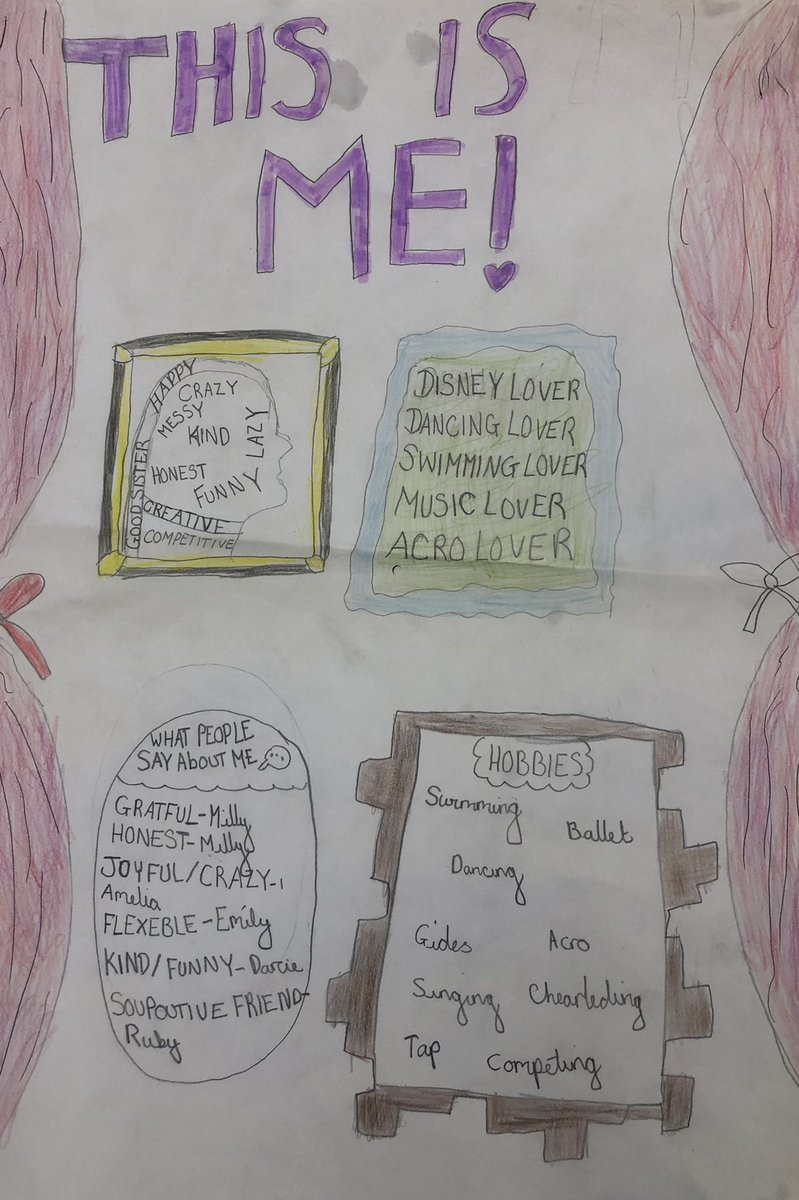 THIS IS
ME!
HAPPY
CRAZY
MESSY
KIND
LAZY
HONEST
FUNNY
GOOD SISTER
CREATIVE
COMPETITIVE
DISNEY LOVER
DANCING LOVER
SWIMMING LOVER
MUSIC LOVER
ACRO LOVER
WHAT PEOPLE
SAY ABOUT ME
GRATFUL-Milly
HONEST-Milly
JOYFUL/CRAZY-
Amelia
FLEXEBLE-Emily
KIND/FUNNY-Darcie
SOUPOUTIVE FRIEND-
Ruby
HOBBIES
Swimming
Ballet
Dancing
Gides Acro
Singing Chearleding
Tap
Competing